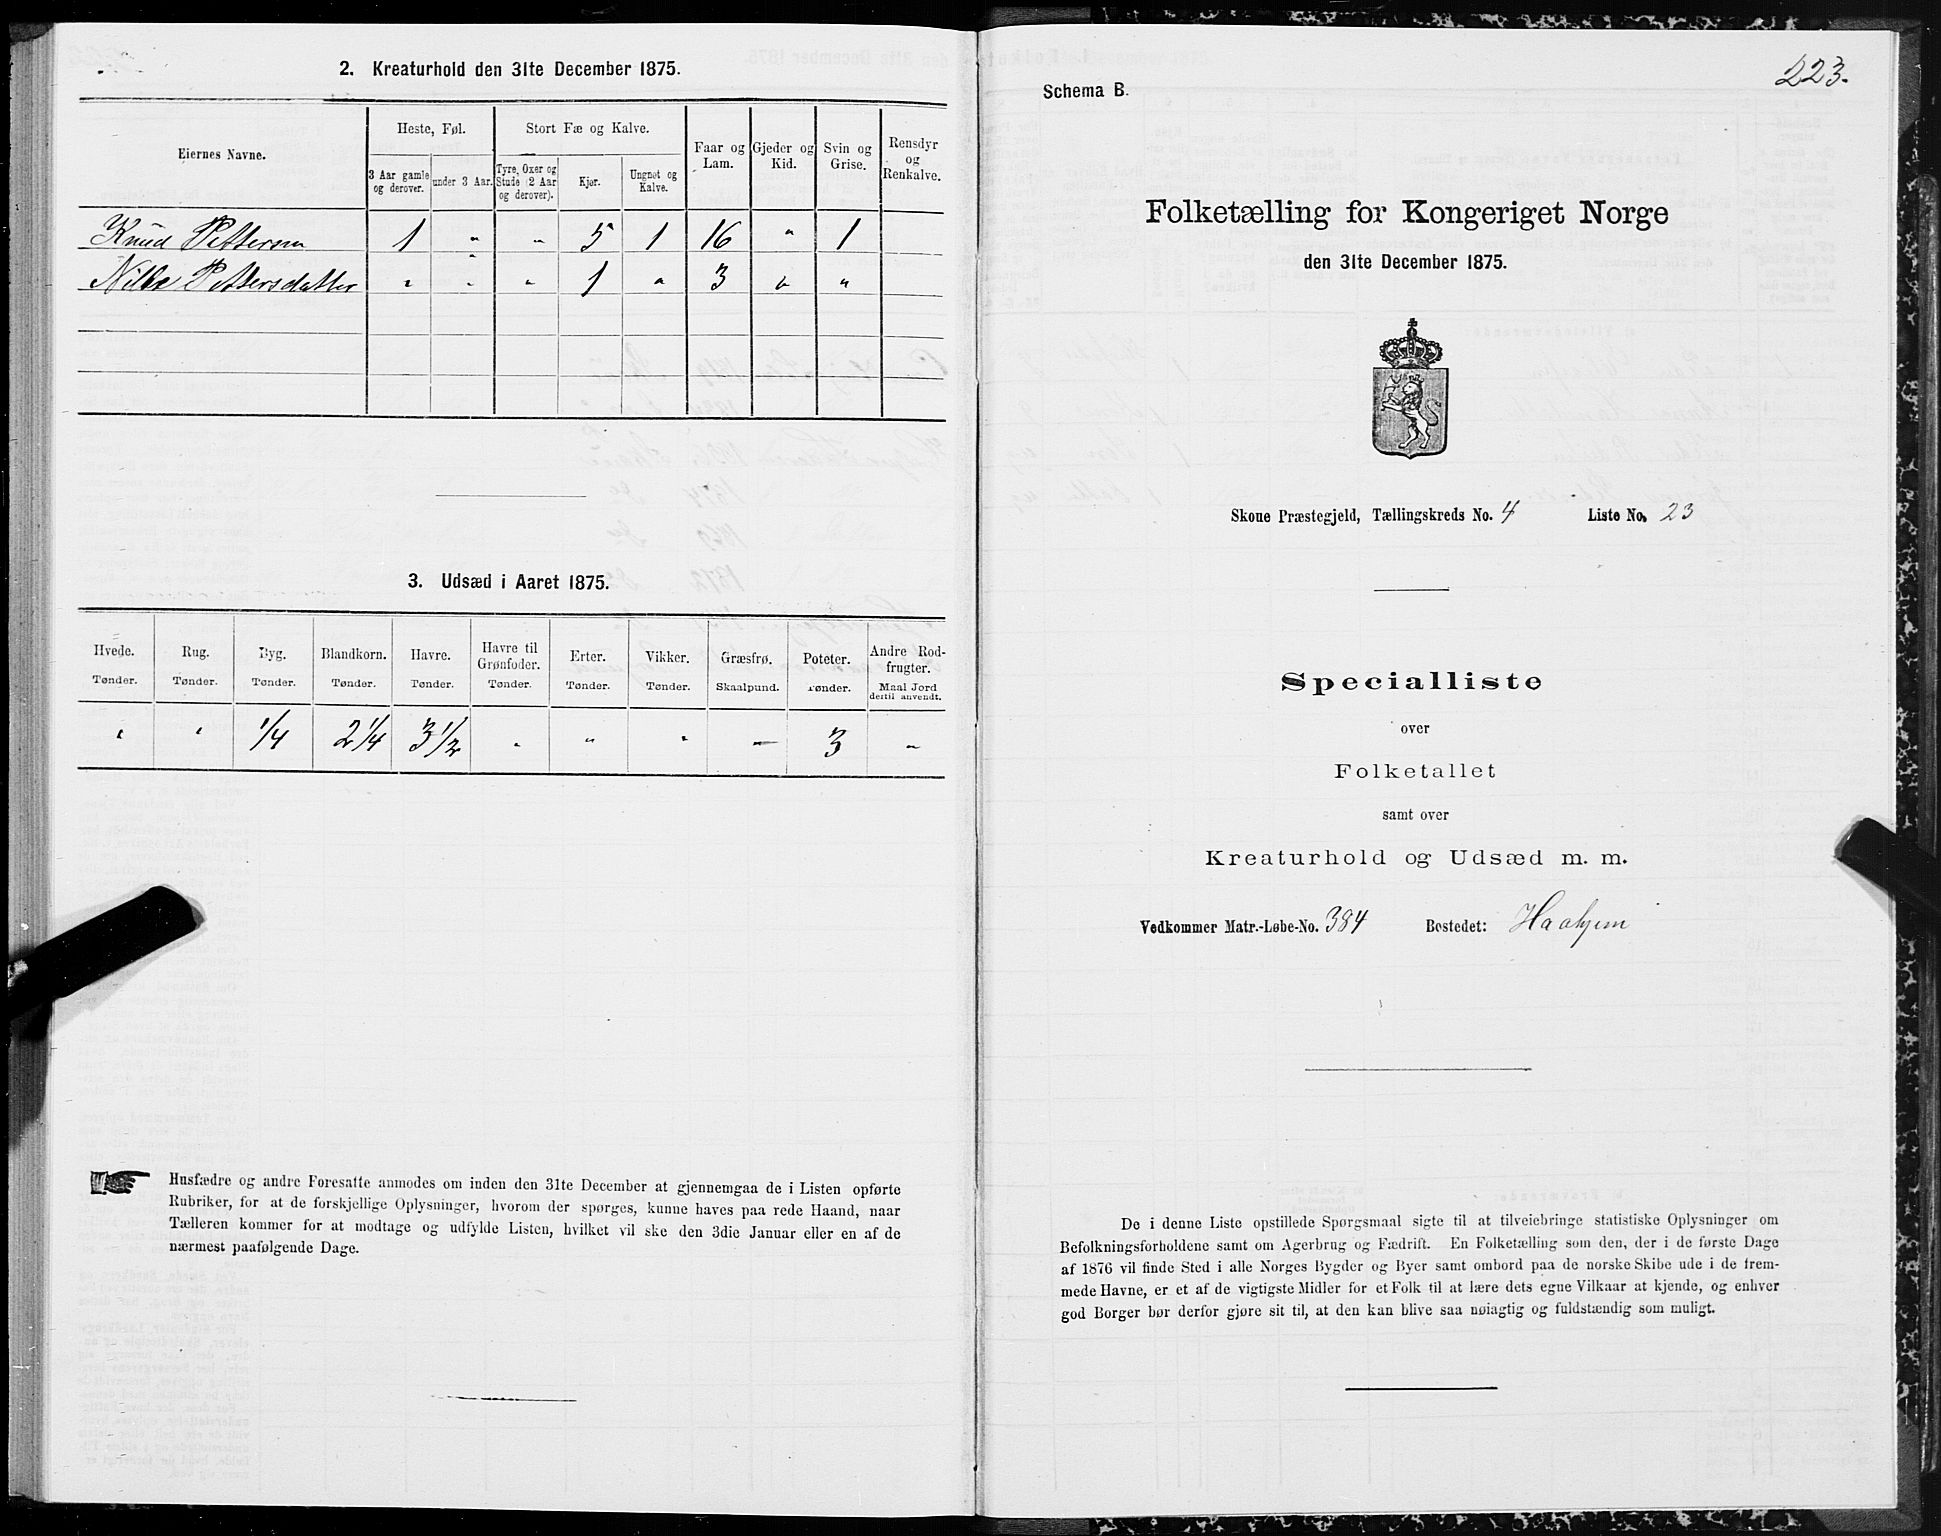 2. Kreaturhold den 31te December 1875.
Eiernes Navne.
Heste, Føl.
3 Aar gamle og derover.
under 3 Aar.
Stort Fæ og Kalve.
Tyre, Oxer og Stude (2 Aar og derover).
Kjør.
Ungnøt og Kalve.
Faar og Lam.
Gjeder og Kid.
Svin og Grise.
Rensdyr og Renkalve.
Knud Pettersen 1 " " 5 1 16 " 1
Pettersdatter " " " 1 " 3 " "
3. Udsæd i Aaret 1875.
Hvede. Rug. Byg. Blandkorn. Havre. Havre til Grønfoder. Erter. Vikker. Græsfrø. Poteter. Andre Rodfrugter.
Tønder. Tønder. Tønder. Tønder. Tønder. Tønder. Tønder. Tønder. Skaalpund. Tønder. Maal Jord dertil anvendt.
" " 1/4 2 1/4 3 1/2 " " " — 3 "
Husfædre og andre Foresatte anmodes om inden den 31te December at gjennemgaa de i Listen opførte
Rubriker, for at de forskjellige Oplysninger, hvorom der spørges, kunne haves paa rede Haand, naar
Tælleren kommer for at modtage og udfylde Listen, hvilket vil ske den 3die Januar eller en af de
nærmest paafølgende Dage.
223.
Schema B.
Folketælling for Kongeriget Norge
den 31te December 1875.
Skoue Præstegjeld, Tællingskreds No. 4 Liste No. 23
Specialliste
over
Folketallet
samt over
Kreaturhold og Udsæd m. m.
Vedkommer Matr.-Løbe-No. 384 Bostedet: Haahjem
De i denne Liste opstillede Spørgsmaal sigte til at tilveiebringe statistiske Oplysninger om
Befolkningsforholdene samt om Agerbrug og Fædrift. En Folketælling som den, der i de første Dage
af 1876 vil finde Sted i alle Norges Bygder og Byer samt ombord paa de norske Skibe ude i de frem-
mede Havne, er et af de vigtigste Midler for et Folk til at lære dets egne Vilkaar at kjende, og enhver
god Borger bør derfor gjøre sit til, at den kan blive saa nøiagtig og fuldstændig som muligt.